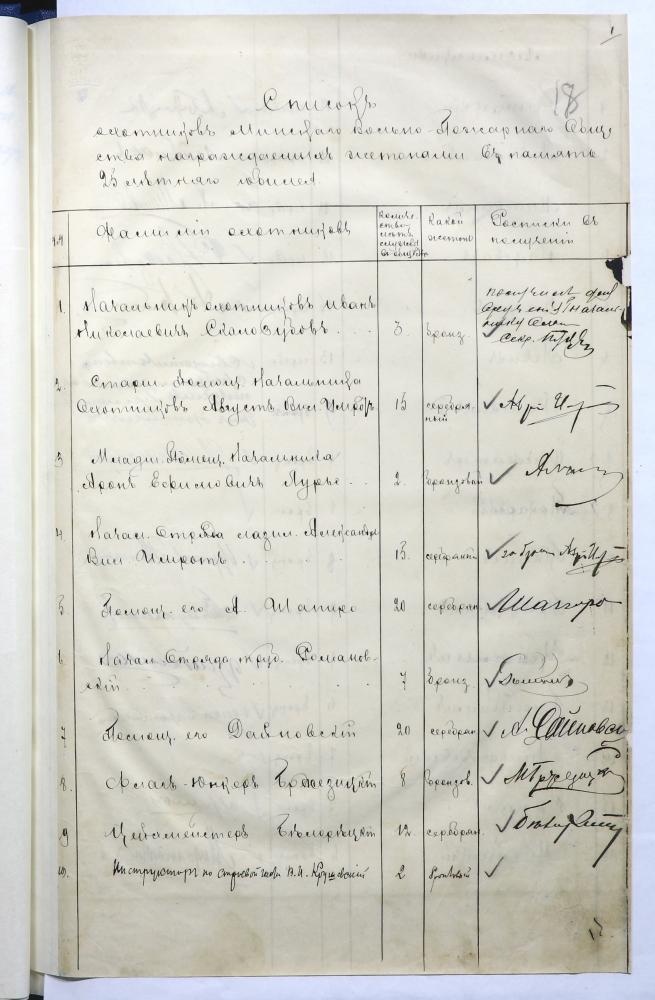 1
18
Списокъ
охотниковъ Минскаго Вольно-Пожарнаго Обще-
ства награждаемыхъ жетонами въ память
25 лѣтняго юбилея
Фамиліи охотниковъ
Количе-
ство
лѣтъ
службы
въ обществѣ
Какой
жетонъ
Росписки въ
полученіи
1. Начальникъ охотниковъ Иванъ
Николаевичъ Скалозубовъ . . . 3 бронз.
Секр.
2. Старш. Помощ. Начальника
Охотниковъ Августъ Вил. 15 серебря-
ный
3 Младш. Помощ. Начальника
Аронъ Ефимовичъ Лурье . . 2. бронзовый
4. Начал. Отряда лазил. Александръ
Вил. 15. серебрян
5. Помощ. его А. Шапиро 20 серебрян Шапиро
6. Начал. Отряда труб. Романов-
скій . . . 7 бронз.
7 Помощ. его Дайновскій 20 серебрян А. Дайновскі
8. Флагъ-Юнкеръ 8 бронзов.
9 Цейхмейстеръ Бѣлорѣцкій 12. серебрян.
10. Инструкторъ по строевой части 2 бронзовый